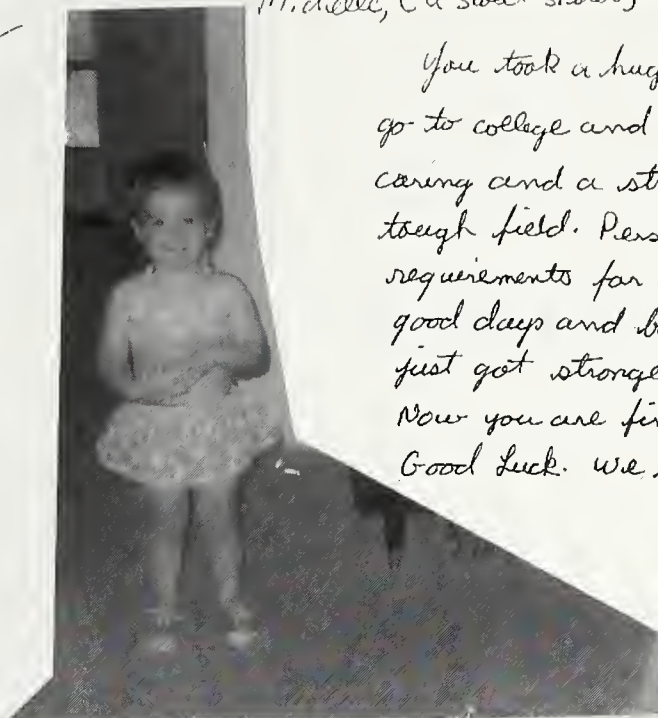 Michelle, (a sweet
You took a hug
go to college and
caring and a st
tough field. Pers
requirements for
good days and b
just got stronge
Now you are fin
Good Luck. We